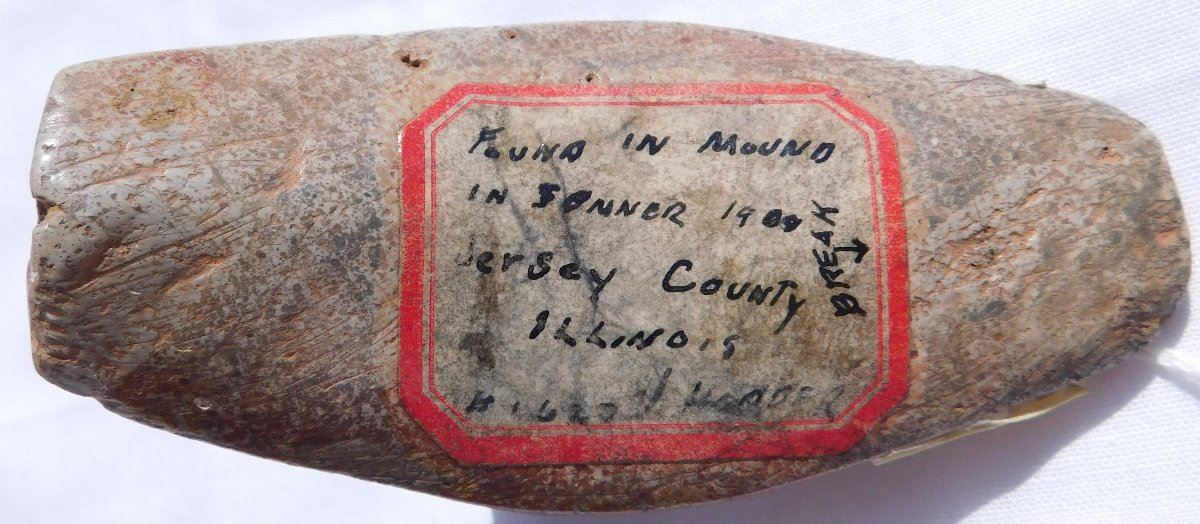 FOUND IN MOUND
IN SOMMER
Jersey County
ILLINOIS
BREAK